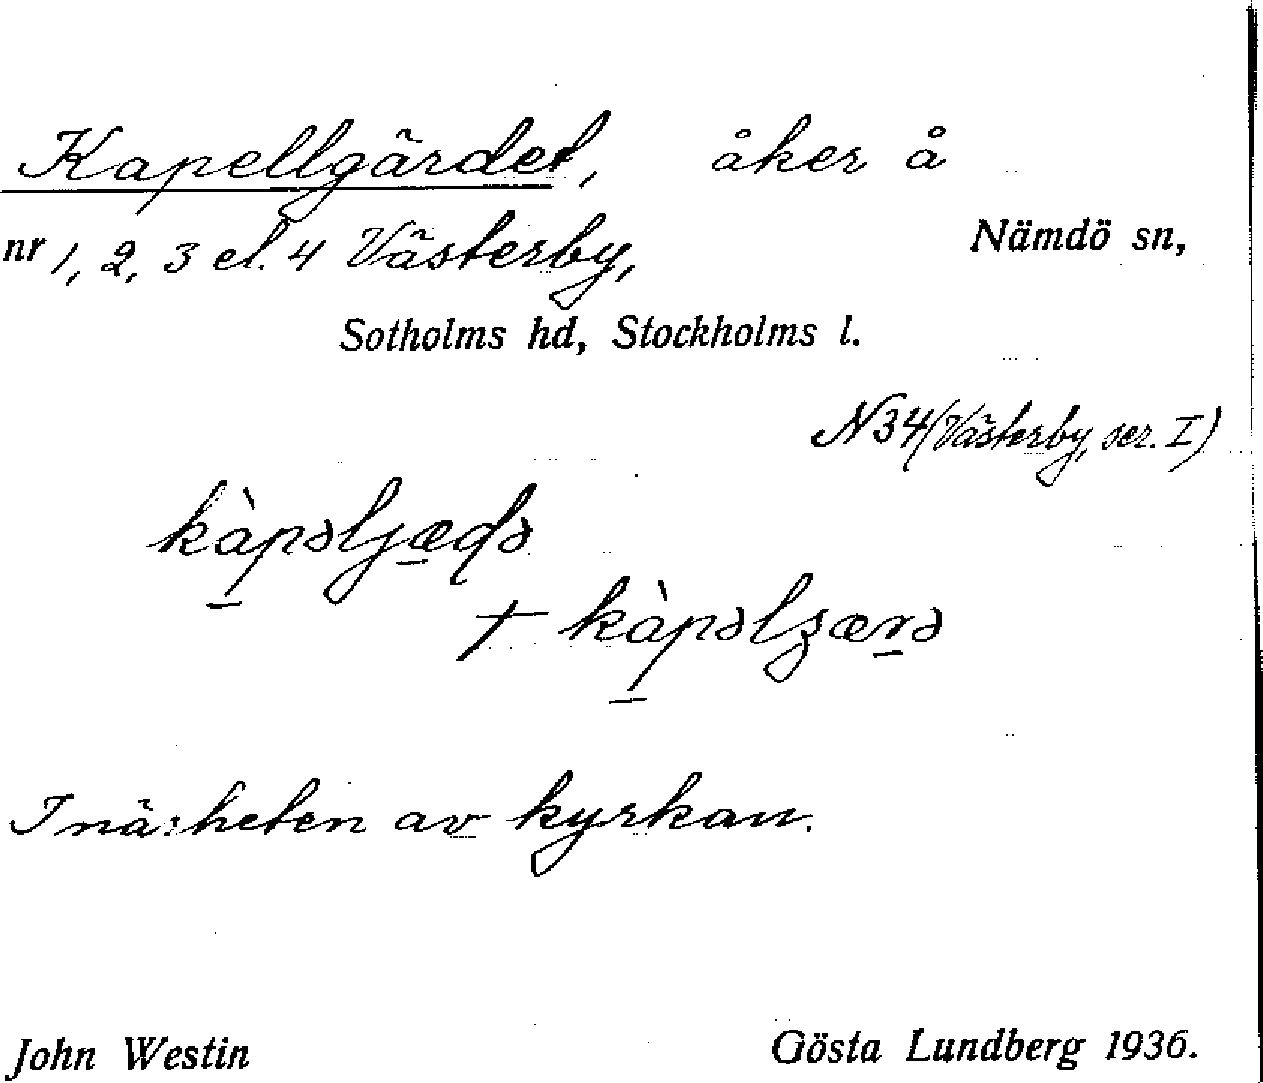 Kapellgärdet, åker å
nr 1, 2, 3 el. 4 Västerby, Nämdö sn,
Sotholms hd, Stockholms l.
N34 (Västerby, ser. I)
kàpəljæɖə
† kàpəlʒærə
I närheten av kyrkan.
John Westin Gösta Lundberg 1936.